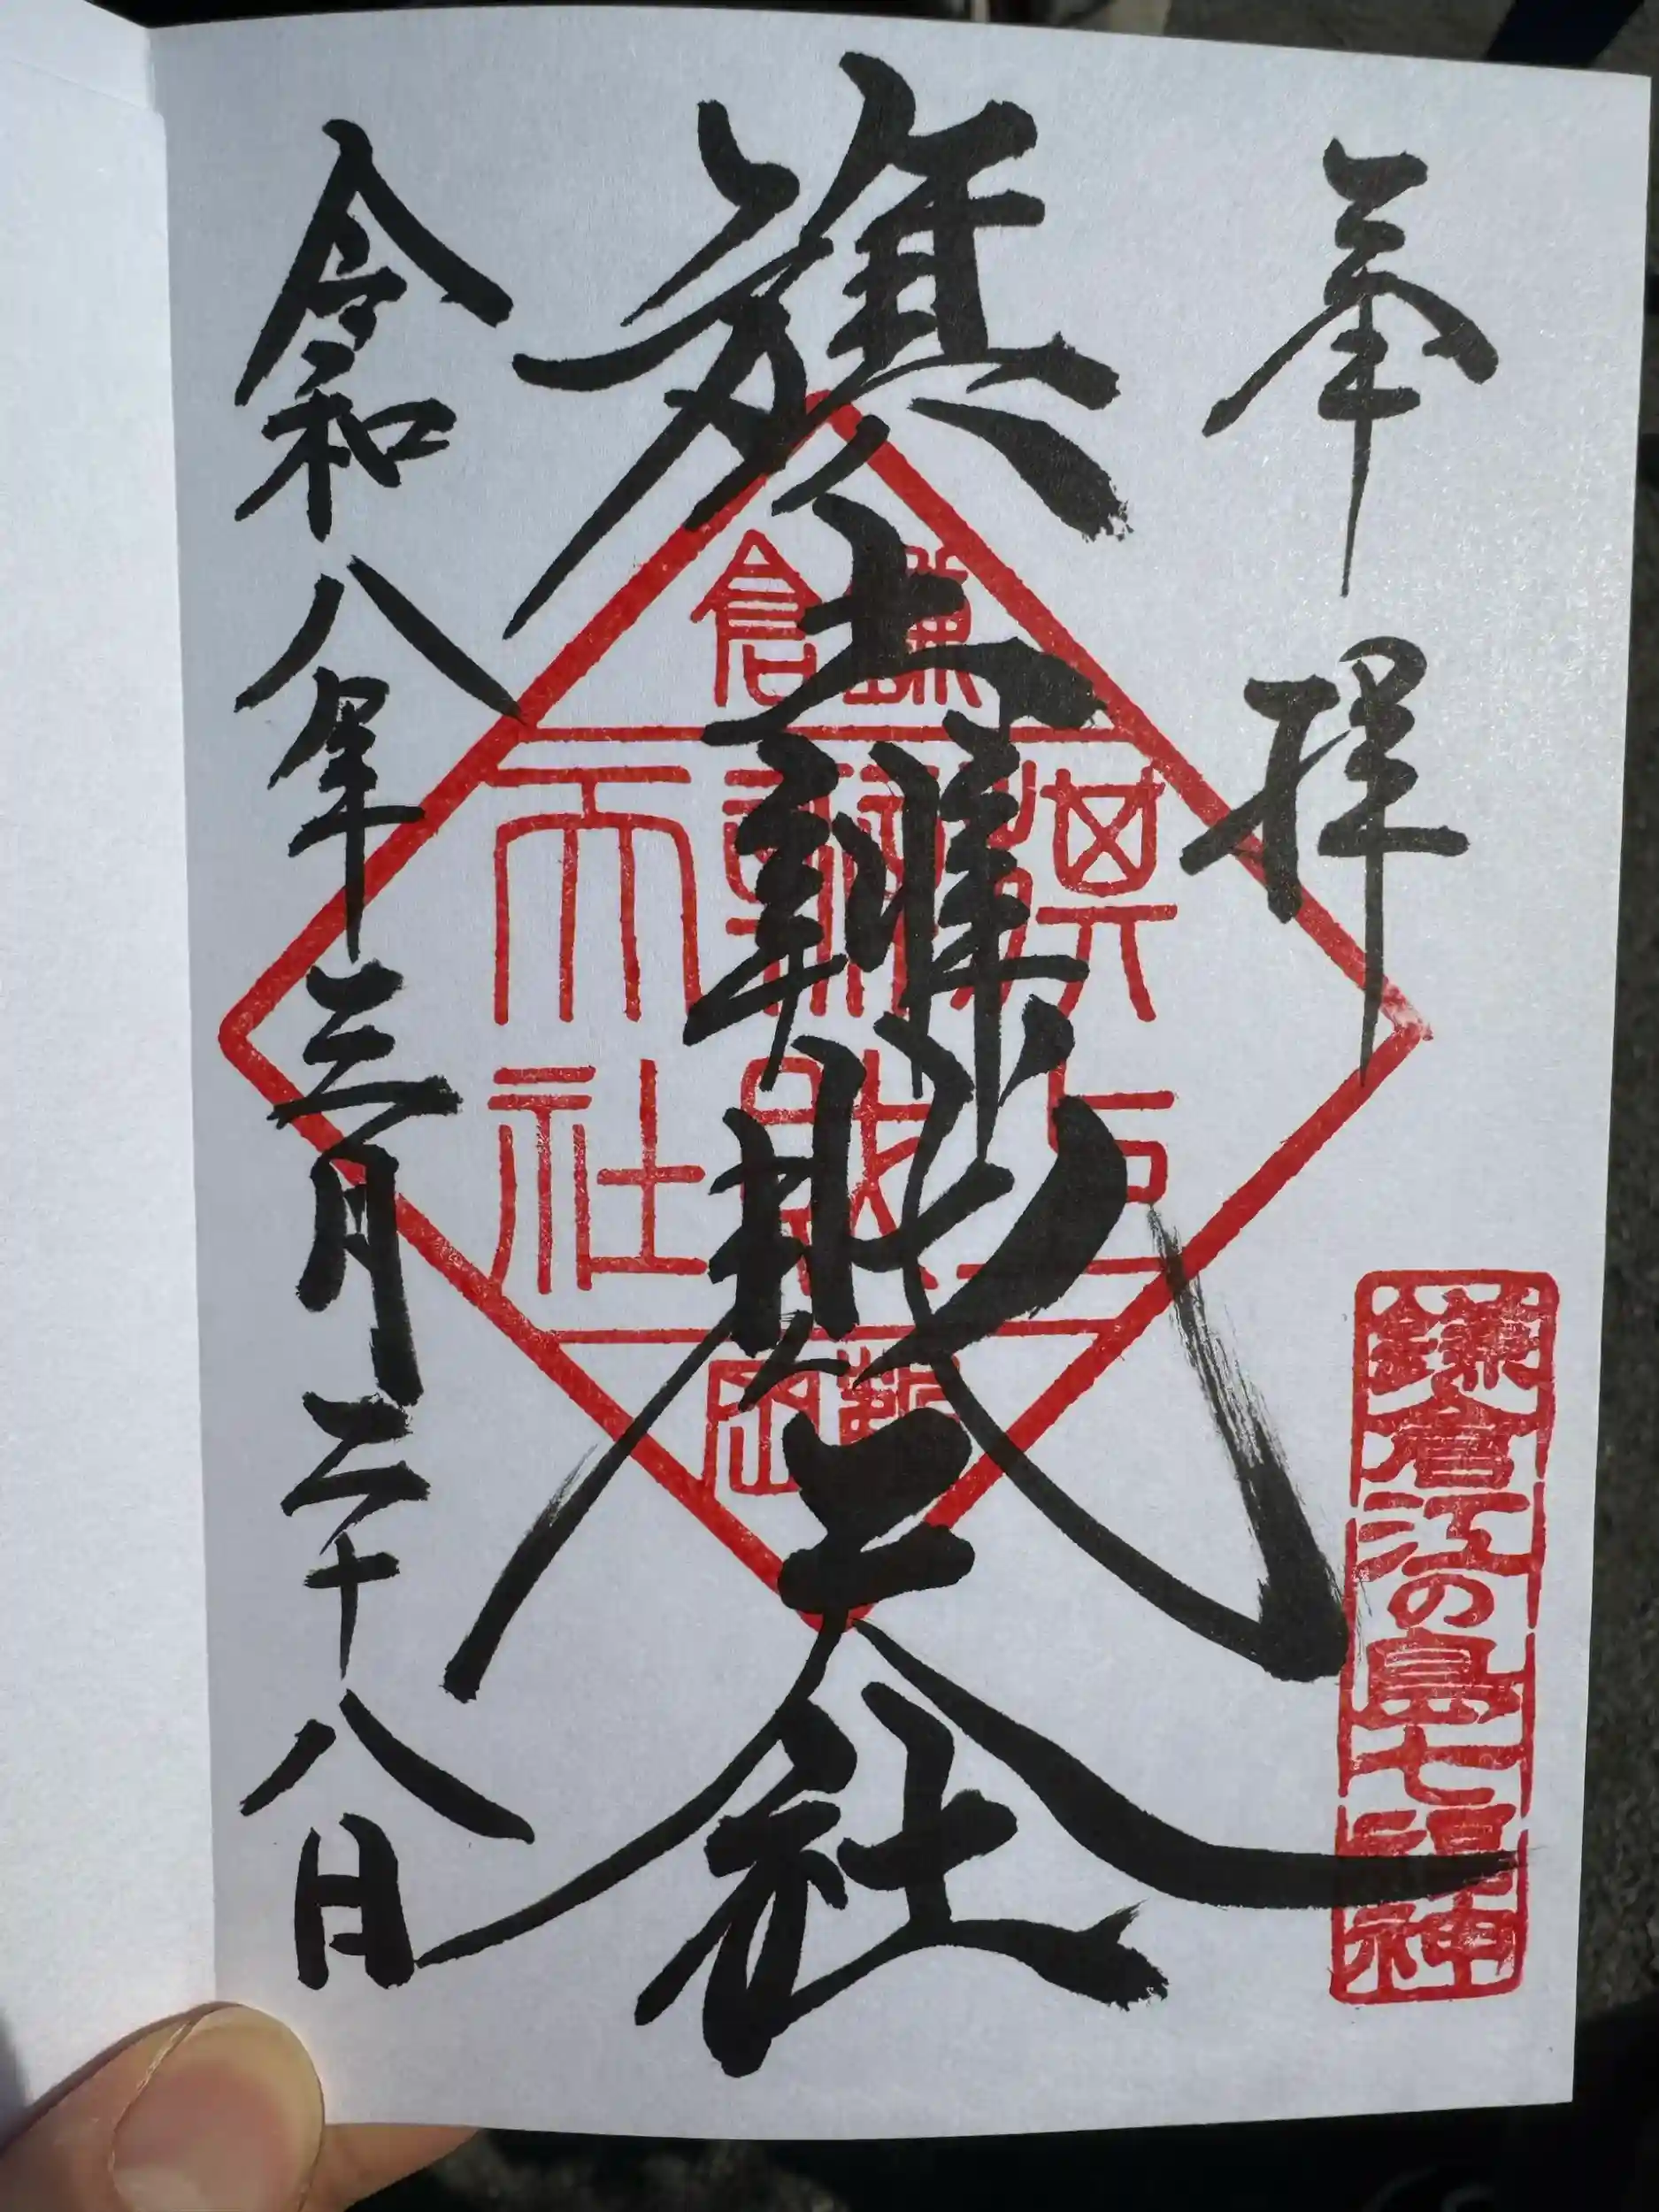 奉拝
鎌倉江の島七福神
旗上辨財天社
鎌倉
辨財
天社
鶴岡
令和八年三月二十八日